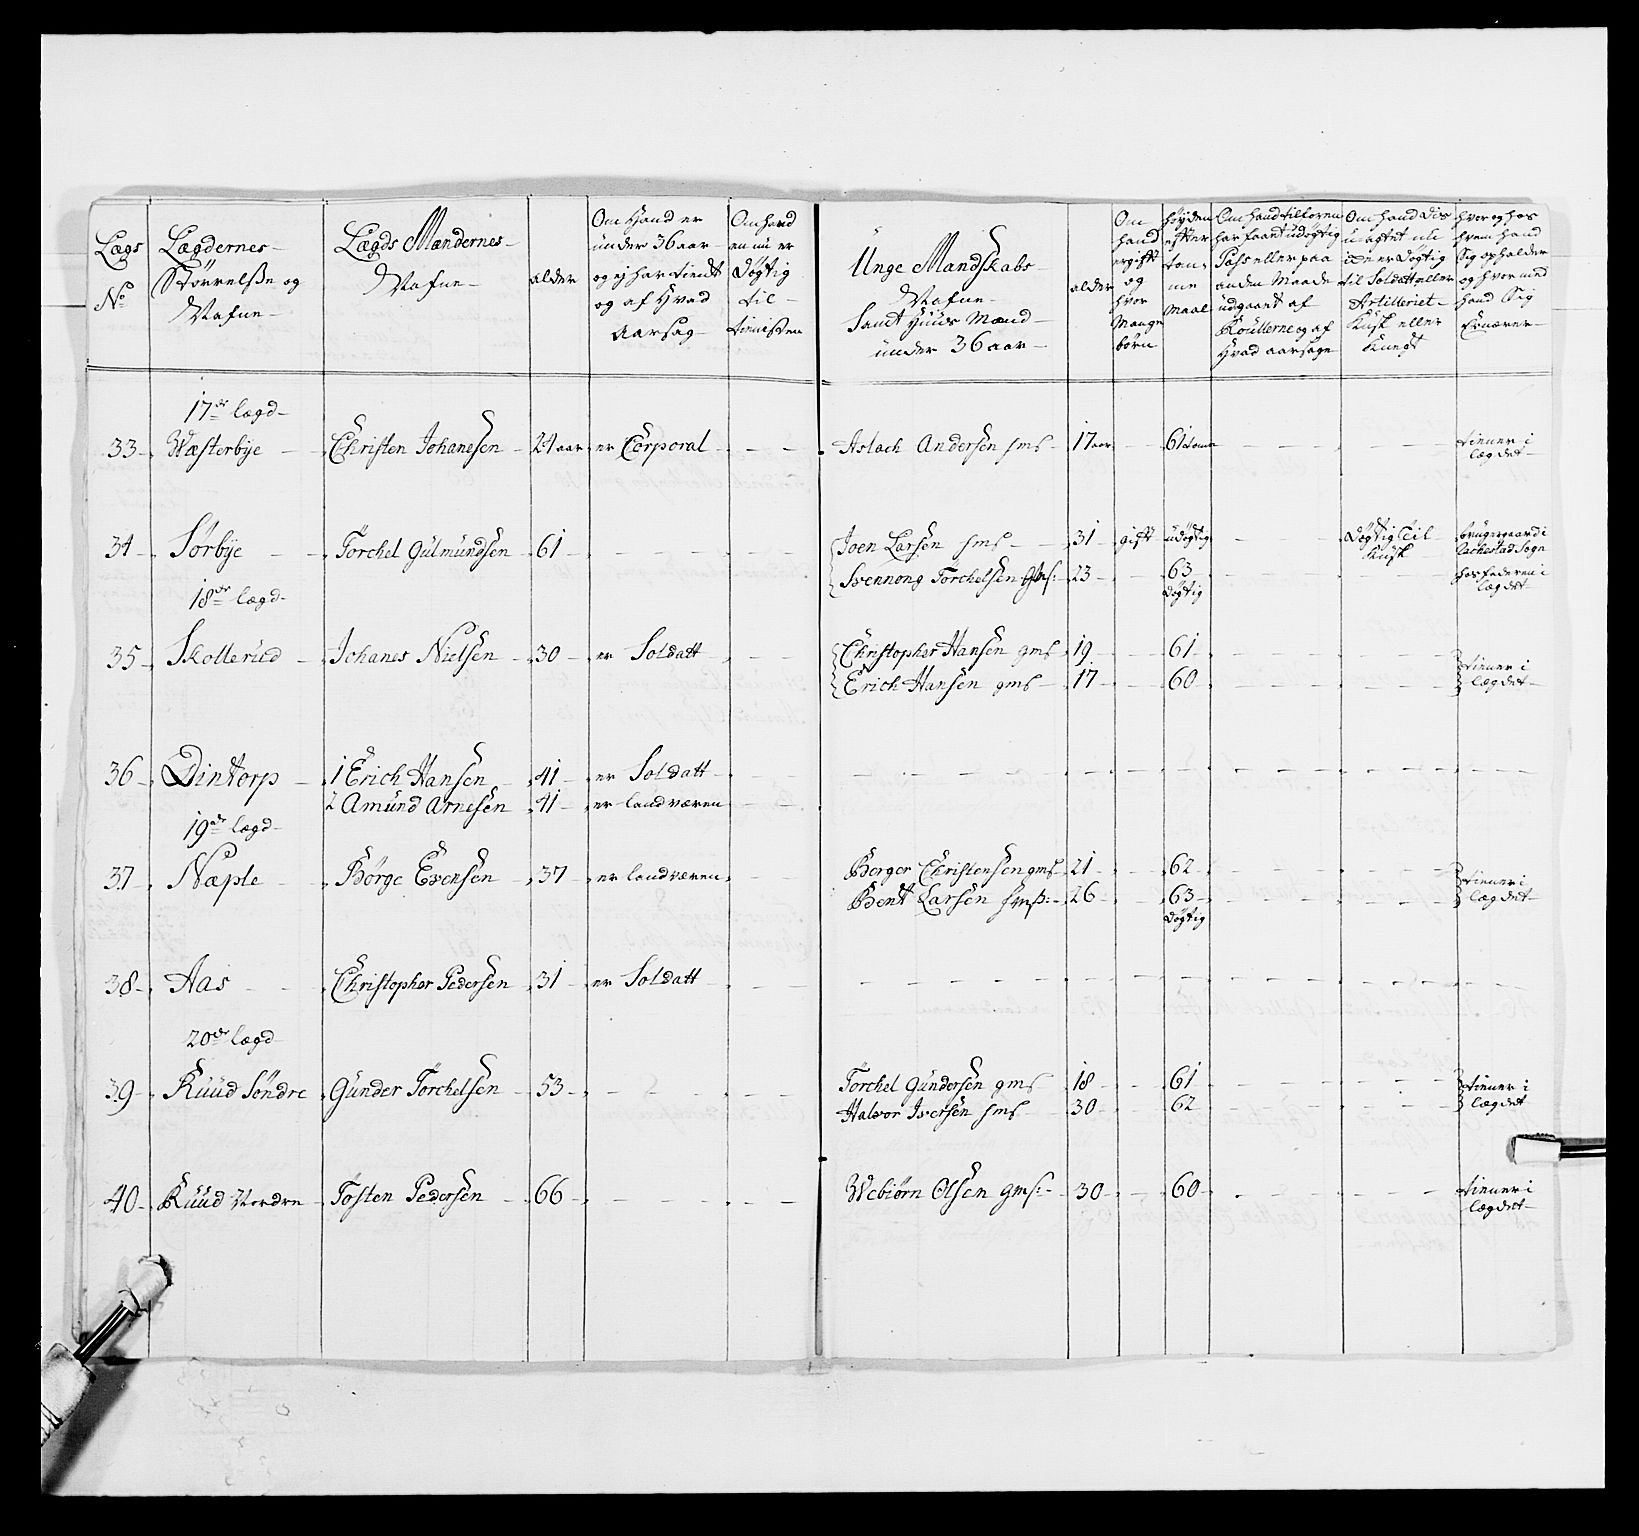 Lægs
No
Lægdernes
Størrelsse og
Nafne
Lægds Mændernes
Nafne
alder
Om Hand er
under 36 aar
og ej har tient
og af Hvad
Aarsag
Om hand
en nu er
Døgtig
til
tienisten
Unge Mandskabs
Nafne
Samt Huus Mænd
under 36 aar
alder
Om
hand
er gift
og
hvor
Mange
børn
høyden
efter
tom
me
Maal
Om hand tilforen
har faaet udøgtig
Pass eller paa
anden Maade
udgaaet af
Roullerne og af
Hvad aarsage
Om hand Dis
uagtet nu
er Døgtig
til Soldatt eller
Artilleriet
Kusk eller
Knegt
hvor og hos
hvem hand
Sig opholder
og hvor med
hand Sig
Ernærer
17de lægd
33 Wæsterbye Christen Johanesen 24 aar er Corporal Aslach Andersen sms 17 aar 61 tome tiener i
lægdet
34 Sørbye Torchel Gulmundsen 61 Joen Larsen sms 31 gift udøgtig Døgtig til
Kusk
brugergaard i
Rachestad Sogn
Svennong Torchelsen gms: 23 63
Døgtig
hos faderen i
lægdet
18de lægd
35 Skollerud Johanes Nielsen 30 er Soldatt Christopher Hansen gms 19 61
Erich Hansen gms 17 60
tiener i
lægdet
36 Dintorp 1 Erich Hansen 41 er Soldatt
2 Amund Arnesen 41 er landværen
19de lægd
37 Næple Børge Evensen 37 er landværen Berger Christensen gms 21 62
Bent Larsen sms: 26 63
Døgtig
tiener i
lægdet
38 Aas Christopher Pedersen 31 er Soldatt
20de lægd
39 Ruud Søndre Gunder Torchelsen 53 Torchel Gundersen gms 18 61
Halvor Iversen sms 30 62
tiener i
lægdet
40 Ruud Nordre Tosten Pedersen 66 Webiørn Olsen gms: 30 60 tiener i
lægdet